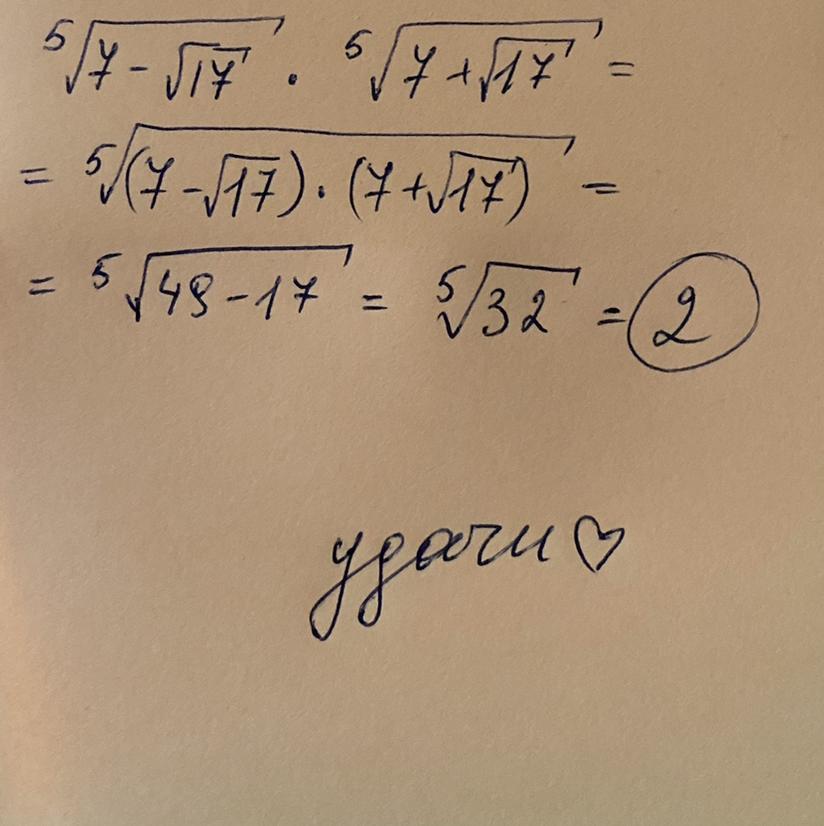 ⁵√(7-√17) · ⁵√(7+√17) =
= ⁵√((7-√17)·(7+√17)) =
= ⁵√(49-17) = ⁵√32 = 2
удачи♡